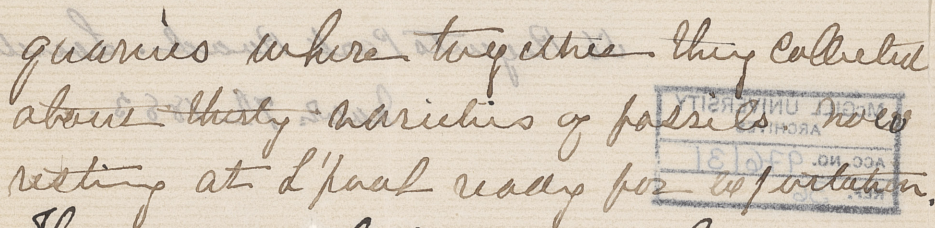 quarries where together they collected
about thirty varieties of fossils now
resting at L'pool ready for exportation.
McGILL UNIVERSITY
ARCHIVES
ACC. NO. 976/31
REF.